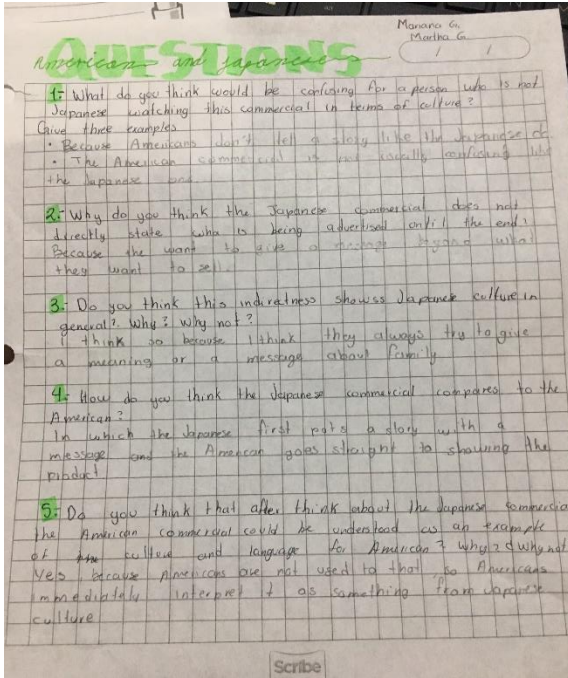 Mariana G.
Martha G
QUESTIONS
American and Japanese
1.- What do you think would be confusing for a person who is not
Japanese watching this commercial in terms of culture?
Give three examples
• Because Americans don't tell a story like the Japanese do
• The American commercial is not usually confusing like
the Japanese one
2.- Why do you think the Japanese commercial does not
directly state wha is being advertised until the end?
Because the want to give a message beyond what
they want to sell.
3.- Do you think this indirectness showss Japanese culture in
general? Why? Why not?
I think so because I think they always try to give
a meaning or a message about family
4.- How do you think the Japanese commercial compares to the
American?
In which the Japanese first puts a story with a
message and the American goes straight to showing the
product
5.- Do you think that after think about the Japanese commercia
the American commercial could be understood as an example
of culture and language for American? Why? d why not
Yes, because Americans are not used to that so Americans
immediately interpret it as something from Japanese
culture
Scribe